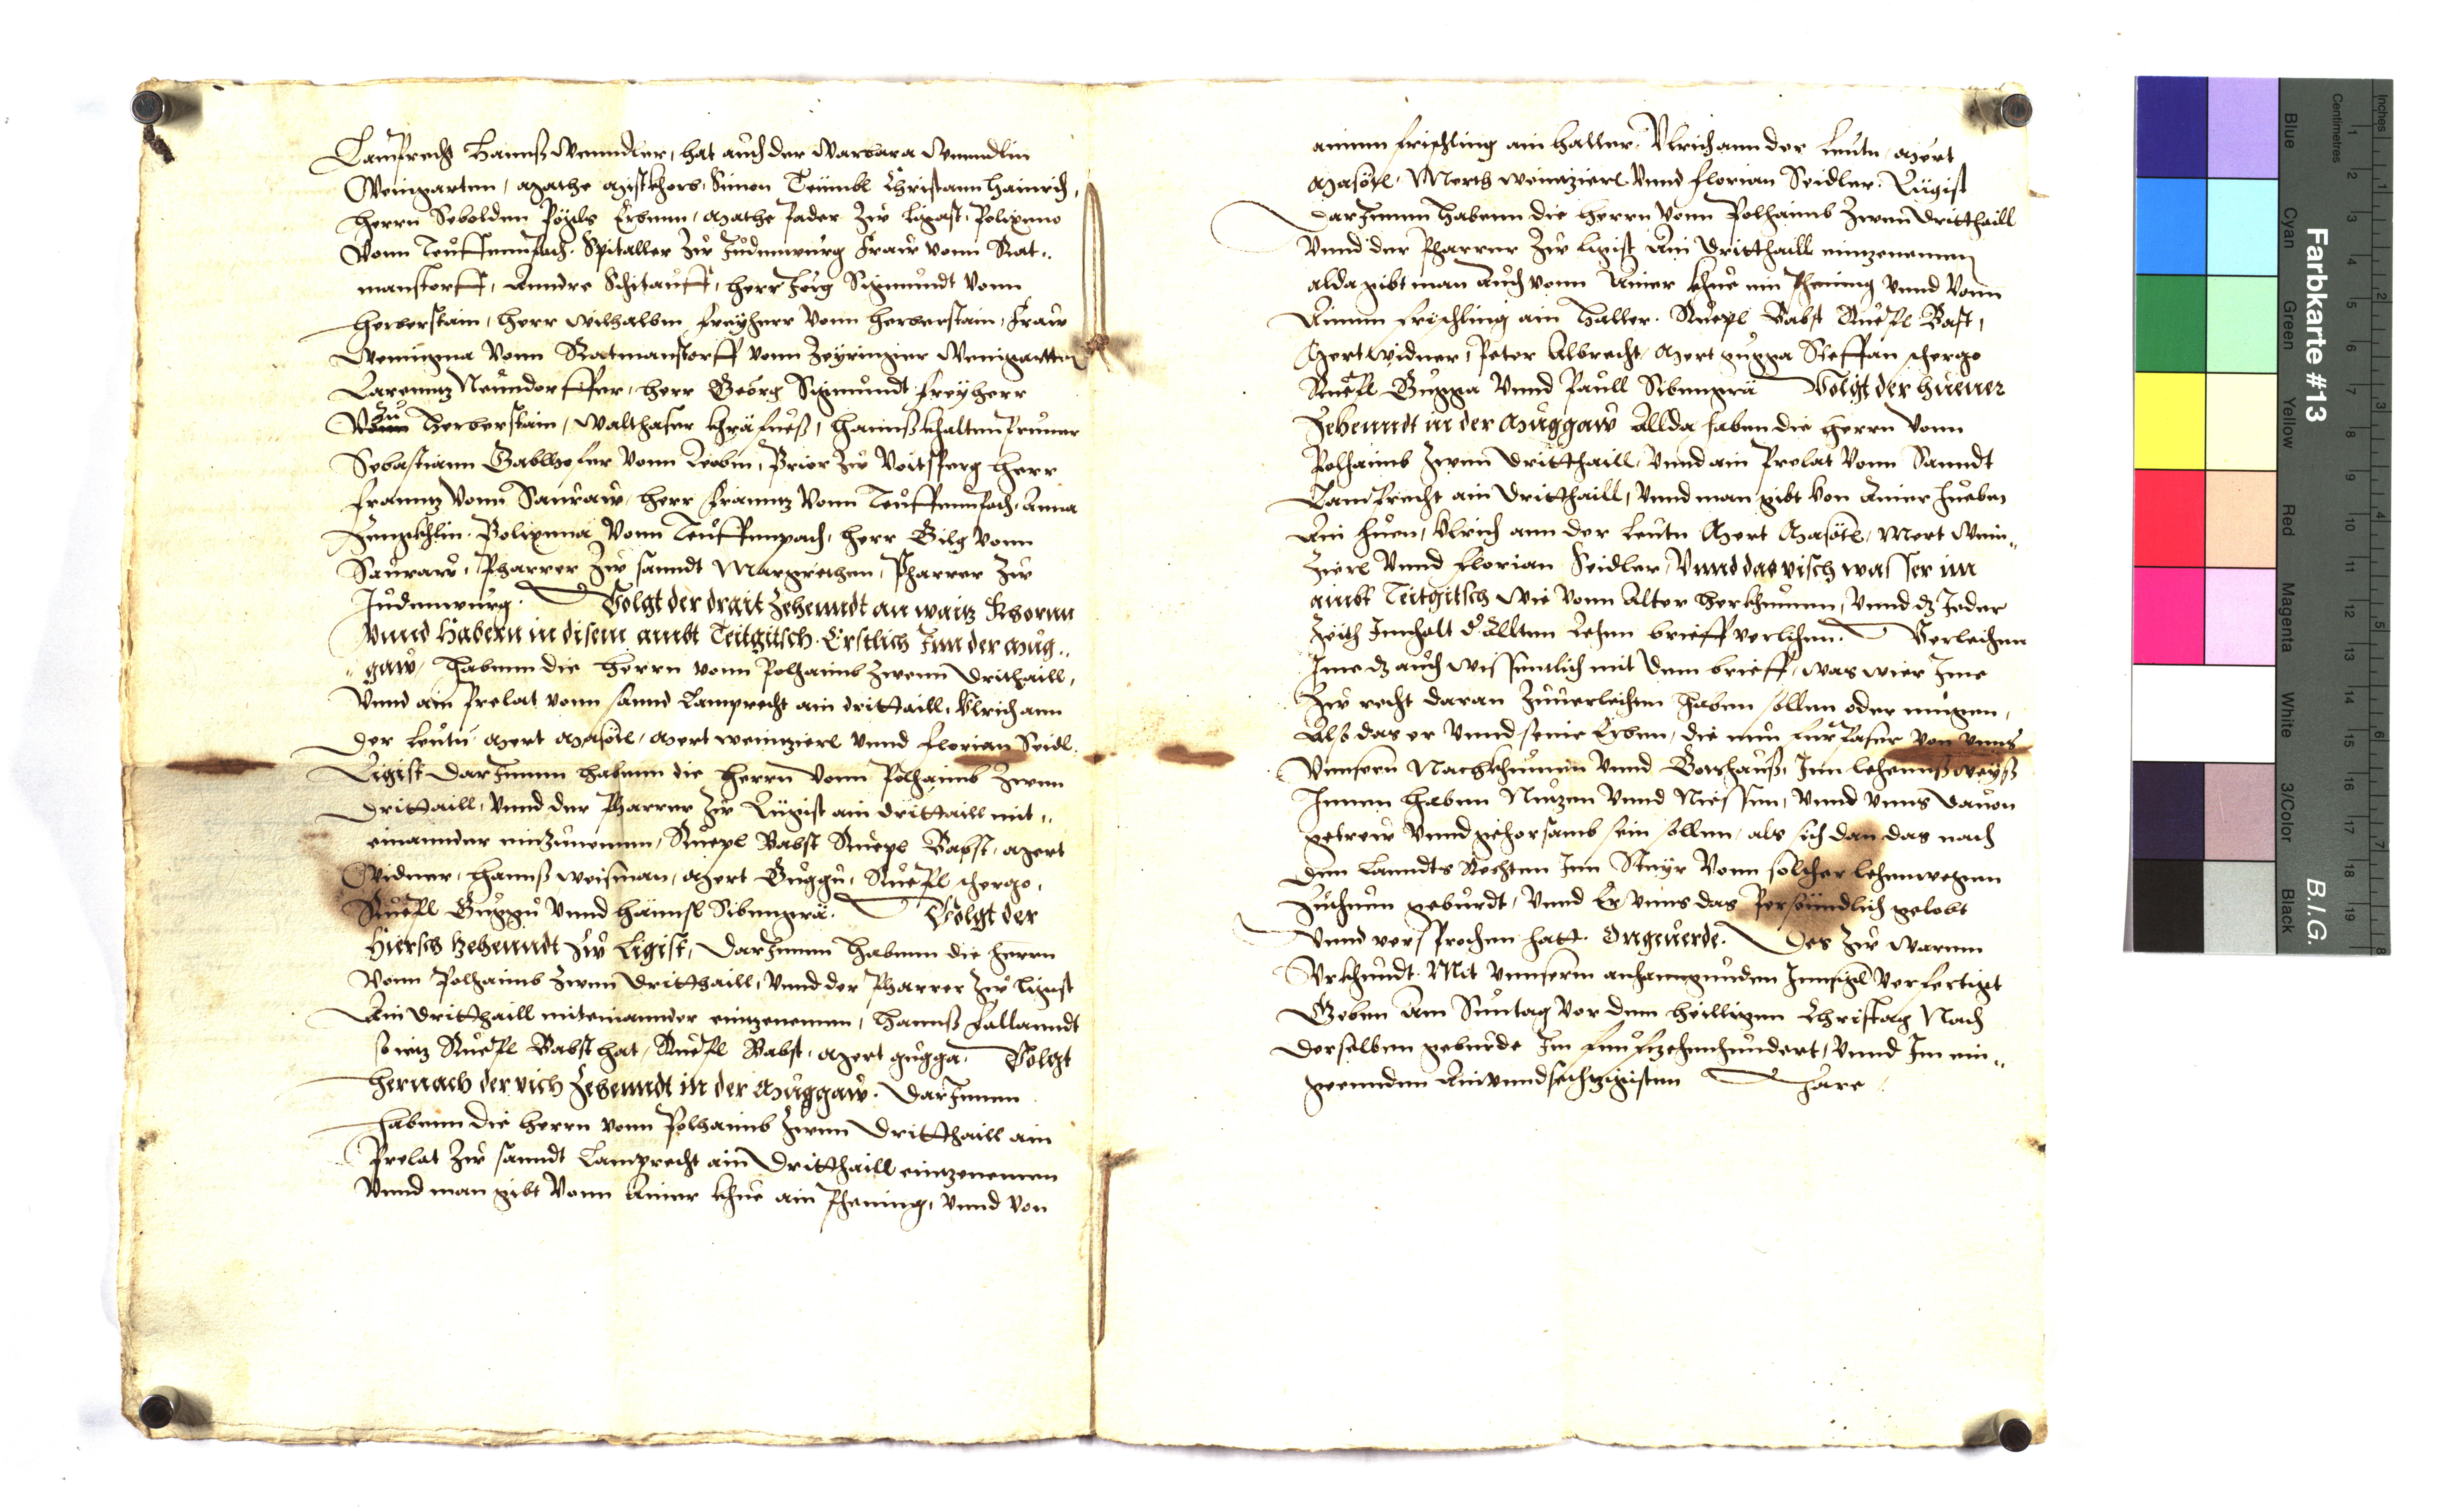 Lamprecht Hannß Wenndler, hat auch der Warbara Wenndlin
Weingarten, Mathe Mistkhorb, Simon Teümbl Christann Hainrich,
Herrn Sebolden Pögls Erbenn, Mathe Pader Zw Ligast, Polixena
Vonn Teuffennpach. Spitaller Zw Judennburg Fraw vonn Rat„
manstorff, Anndre Schitauff, Herr Jörg Sigmundt Vonn
Herberstain, Herr Wilhalbm Freyherr Vonn Herberstain, Fraw
Wemigna Vonn Ratmanstorff vonn Zeyringer Weingartten
Larenntz Neundorffer, Herr Georg Sigmundt Freyherr
Zu
Vonn Herberstain, Walthaser Khräfueß, Hannß Khaltenprunner
Sebastiann Gablhofer Vonn Leoben, Prior Zw Voitsperg Herr
Franntz Vonn Sauraw, Herr Franntz Vonn Teuffennpach, Anna
Polixenna Vonn Teuffenpach, Herr Gilg Vonn
Sauraw, Pharrer Zw sanndt Margrethen, Pharrer Zw
Judennburg. Volgt der drait Zehenndt an waitz Khornn
Vnnd Habern in disem ambt Teitgitsch. Erstlich Inn der Mug„
„gaw, Habenn die Herrn vonn Polhaimb Zwenn drithaill,
Vnnd ain Prelat vonn sannd Lamprecht ain drittaill, Vlrich ann
der Leuttn Mert Masötl, Mert Weinzierl Vnnd Florian Seidl.
Ligist darJnnen habenn die Herrn Vonn Polhaimb Zwen
drittaill, Vnnd der Pharrer Zw Lügist ain drittaill mit„
einannder einZunemen, Ruepl Babst Ruepl Babst, Mert
Widner, Hannß Weisman, Mert Guggu, Ruepl scherge,
Ruepl Guggu Vnnd Hännsl Sibengrä. Volgt der
Hiersch Zehenndt Zw Ligist, DarJnnen Habenn die Herrn
Vonn Polhaimb Zwen dritthaill, Vnnd der Pharrer Zw Ligist
Ain dritthaill miteinannder einzenemen, Hannß Fallanndt
so ietz Ruepl Babst hat, Ruepl Babst, Mert Gugga. Volgt
hernach der vich Zehenndt in der Muggaw. DarJnnen
habenn die Herrn vonn Polhaimb Zwen dritthaill ain
Prelat Zw sanndt Lamprecht ain dritthaill einzenemen
Vnnd man gibt Vonn Ainer Khue ain Phening, Vnnd Von
ainem frischling ain Haller. Vlrich ann der Leutn, Mert
Masötl, Merth Weinzierl Vnnd Florian Seidler. Lügist
DarJnnen Habenn die Herrn Vonn Polhaimb Zwen dritthaill
Vnnd der Pharrer Zw Ligist Ain dritthaill einzenemen
alda gibt man auch vonn Ainer Khue ein Phening Vnnd Vonn
Ainem frischling ain Haller. Ruepl Babst Ruepl Bast,
Mert Widner, Peter Albrecht, Mert Gugga Steffan scherge
Ruepl Gugga Vnnd Paull Sibengrä Volgt der hüener
Zehenndt in der Muggaw Allda haben die Herrn Vonn
Polhaimb Zwen dritthaill, Vnnd ain Prelat Vonn Sanndt
Lamprecht ain dritthaill, Vnnd man gibt Von Ainer Hueben
Ain Huen, Vlrich ann der Leutn Mert Masötl, Mert Wein„
Zierl Vnnd Florian Seidler, Vnnd das visch wasser im
ambt Teitgitsch wie Vonn Alter herkhumen, Vnnd dz Jeder
Zeith Jnnhalt d' Allten Lehen brieff verlihen. Verleihen
Jme dz auch wissentlich mit dem brieff, was wier Jme
Zw recht daran Zuuerleihen haben sollen oder mügen,
Alß das er Vnnd seine Erben, die nun furpaser von vnns
Vnnsern Nachkhumen Vnnd Gotshauß, Jnn lehennßweyß
Jnnen haben Nutzen Vnnd Niessen, Vnnd vnns dauon
getrew Vnnd gehorsamb sein sollen, als sich dan das nach
den Lanndts Rechten Jnn Steyr Vonn solcher lehenwegen
Zuthun geburdt, Vnnd Er vnns das Persöndlich gelobt
Vnnd versprochen hatt. Ongeuerde. Des Zw Warem
Vrkhundt. Mit Vnnserm anhanngunden Jnnsigl Verfertigt
Geben Am Suntag Vor dem heilligen Christag Nach
derselben geburde Jm funfzehenhundert, Vnnd Jm ein„
geennden Ainvndsechtzigisten Jare
Farbkarte #13
B.I.G.
Inches
Centimetres
Blue
Cyan
Green
Yellow
Red
Magenta
White
3/Color
Black
1 2 3 4 5 6 7 8 9 10 11 12 13 14 15 16 17 18 19
1 2 3 4 5 6 7 8